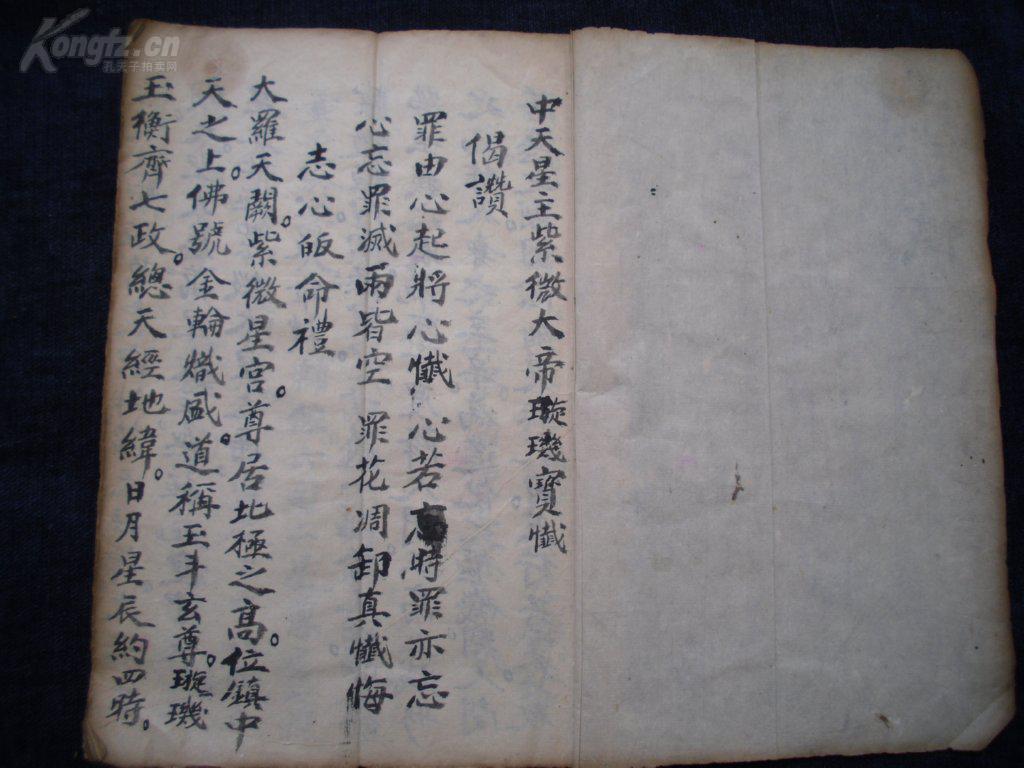 中天星主紫微大帝璇璣寶懺
偈讚
罪由心起將心懺心若忘時罪亦忘
心忘罪滅兩皆空罪花凋卸真懺悔
志心皈命禮
大羅天闕。紫微星宮。尊居北極之高。位鎮中
天之上。佛號金輪熾盛。道稱玉斗玄尊。璇璣
玉衡齊七政。總天經地緯。日月星辰約四時。
Kongtz.cn
孔夫子拍卖网